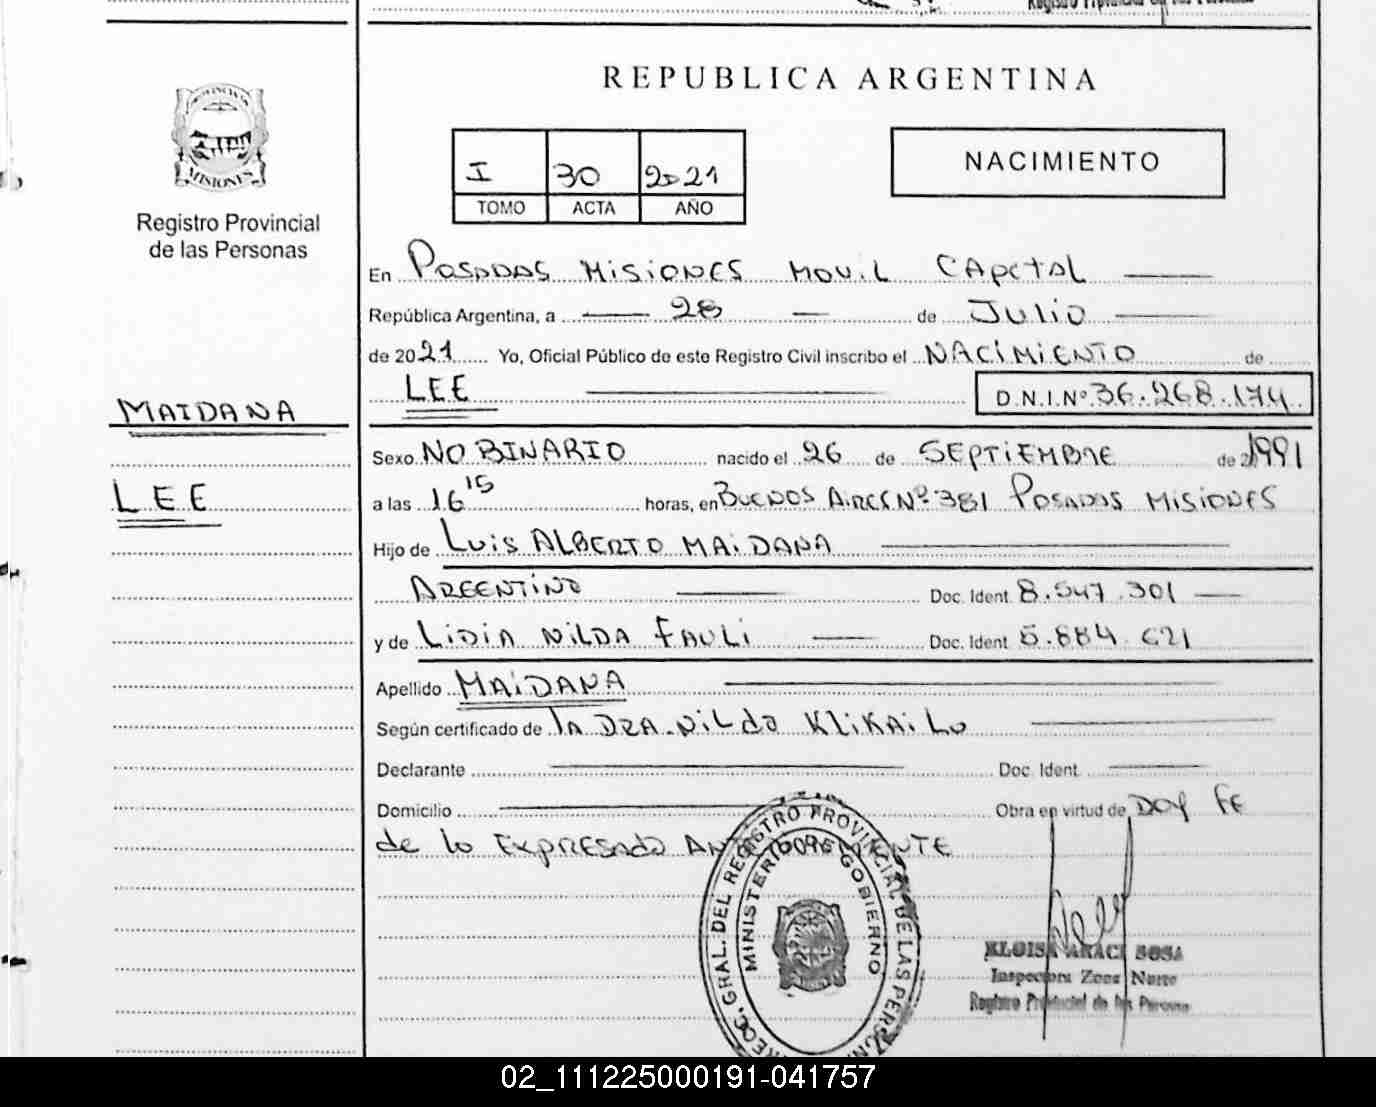 REPUBLICA ARGENTINA
PROVINCIA DE
MISIONES
Registro Provincial
de las Personas
I 30 2021
TOMO ACTA AÑO
NACIMIENTO
En POSADAS MISIONES MOVIL CAPETAL
República Argentina, a 28 de JULIO
de 2021 Yo, Oficial Público de este Registro Civil inscribo el NACIMIENTO de
LEE D.N.I.Nº 36.268.174
MAIDANA
LEE
Sexo NO BINARIO nacido el 26 de SEPTIEMBRE de 1991
a las 16 15 horas, en BUENOS AIRES Nº 381 POSADAS MISIONES
Hijo de LUIS ALBERTO MAIDANA
ARGENTINO Doc. Ident. 8.547.301
y de LIDIA NILDA FAULI Doc. Ident. 5.884.621
Apellido MAIDANA
Según certificado de la DRA. NILda KLIKAILO
Declarante Doc. Ident.
Domicilio Obra en virtud de DOY FE
de lo EXPRESADO ANTERIORMENTE
DIRECC. GRAL. DEL REGISTRO PROVINCIAL DE LAS PERSONAS
MINISTERIO DE GOBIERNO
ELOISA ARACI SOSA
Inspectora Zona Norte
Registro Provincial de las Personas
02_111225000191-041757